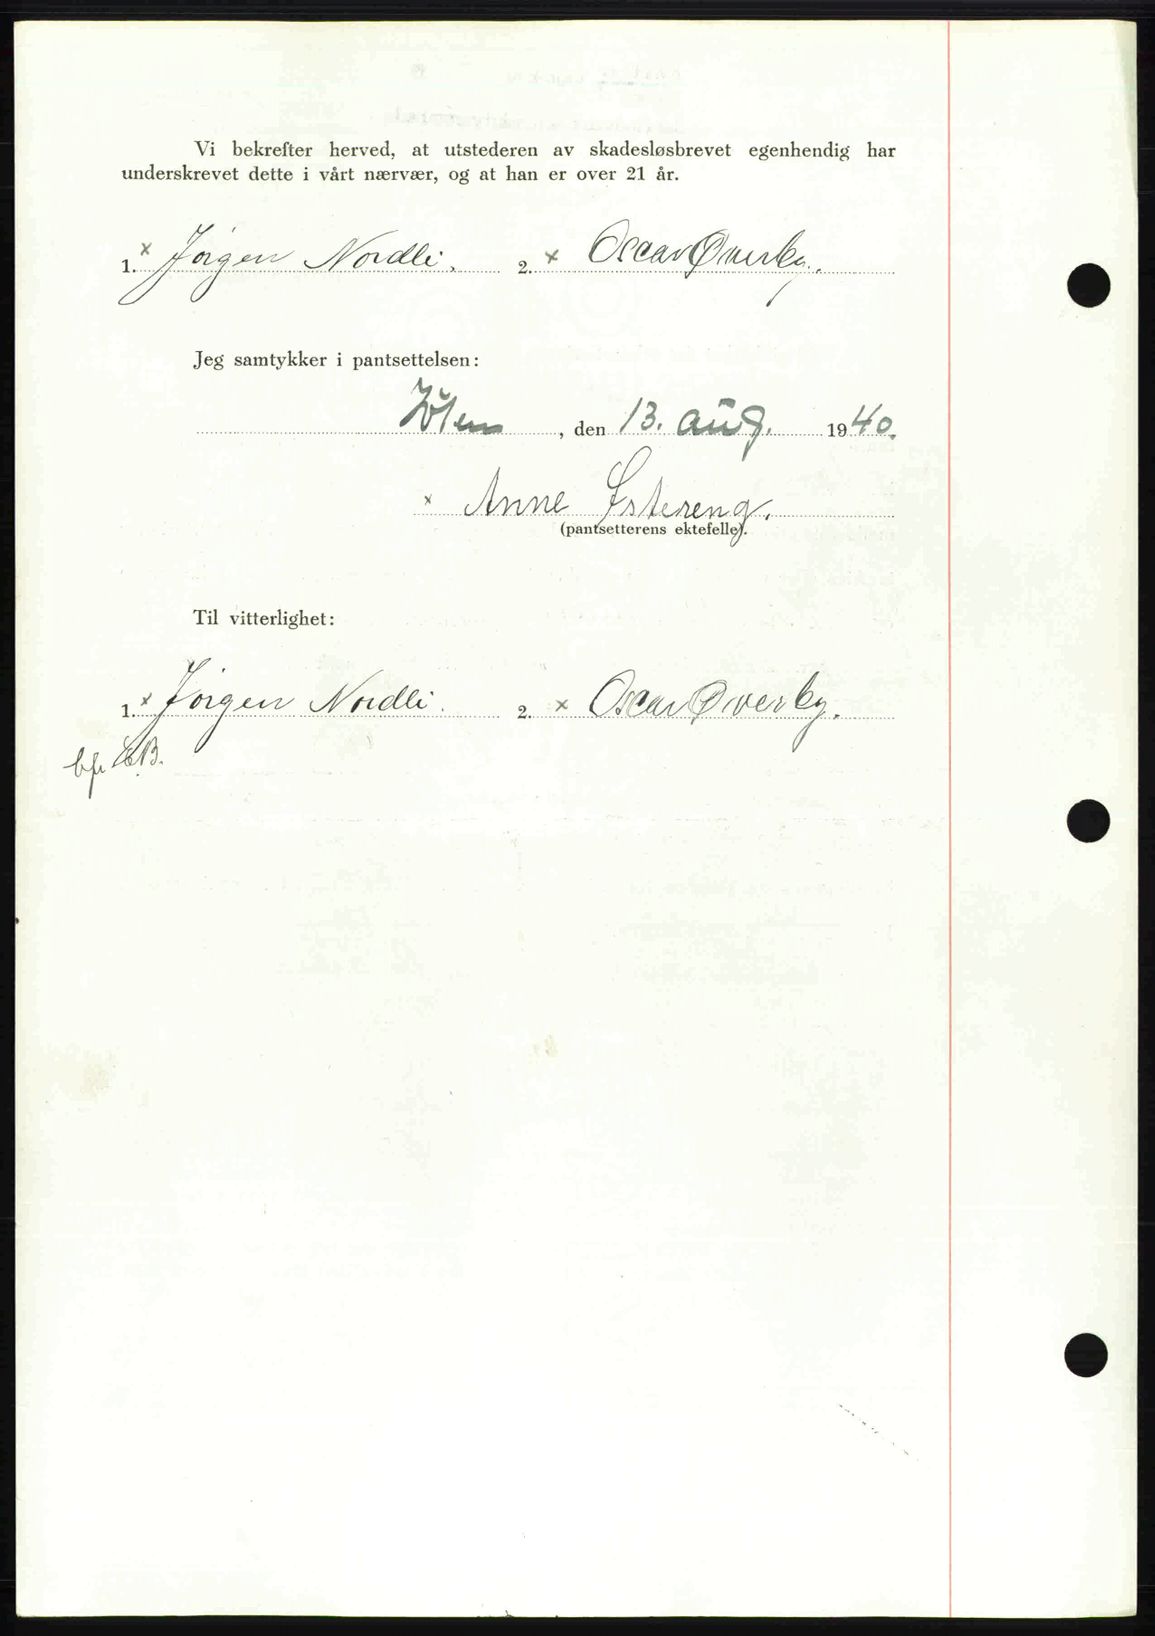 Vi bekrefter herved, at utstederen av skadesløsbrevet egenhendig har
underskrevet dette i vårt nærvær, og at han er over 21 år.
1. x Jørgen Nordli. 2. x Oscar Øverby.
Jeg samtykker i pantsettelsen:
, den 13. aug. 1940.
x Anne Østereng.
(pantsetterens ektefelle).
Til vitterlighet:
1. x Jørgen Nordli. 2. x Oscar Øverby.